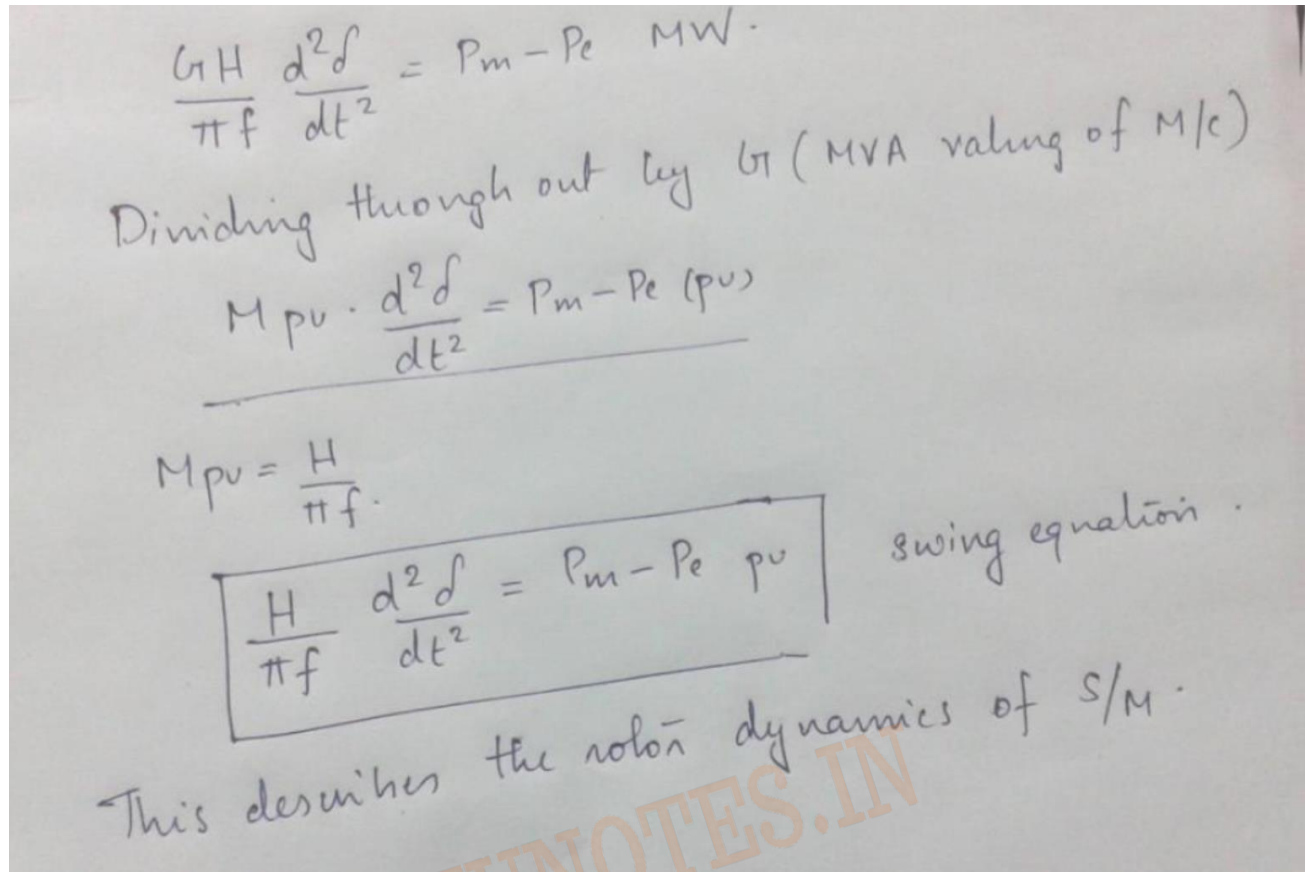 GH/πf d²δ/dt² = Pm - Pe MW.
Dividing through out by G (MVA rating of M/c)
M pu . d²δ/dt² = Pm - Pe (pu)
M pu = H/πf.
H/πf d²δ/dt² = Pm - Pe pu swing equation.
This describes the rotor dynamics of S/M.
NOTES.IN